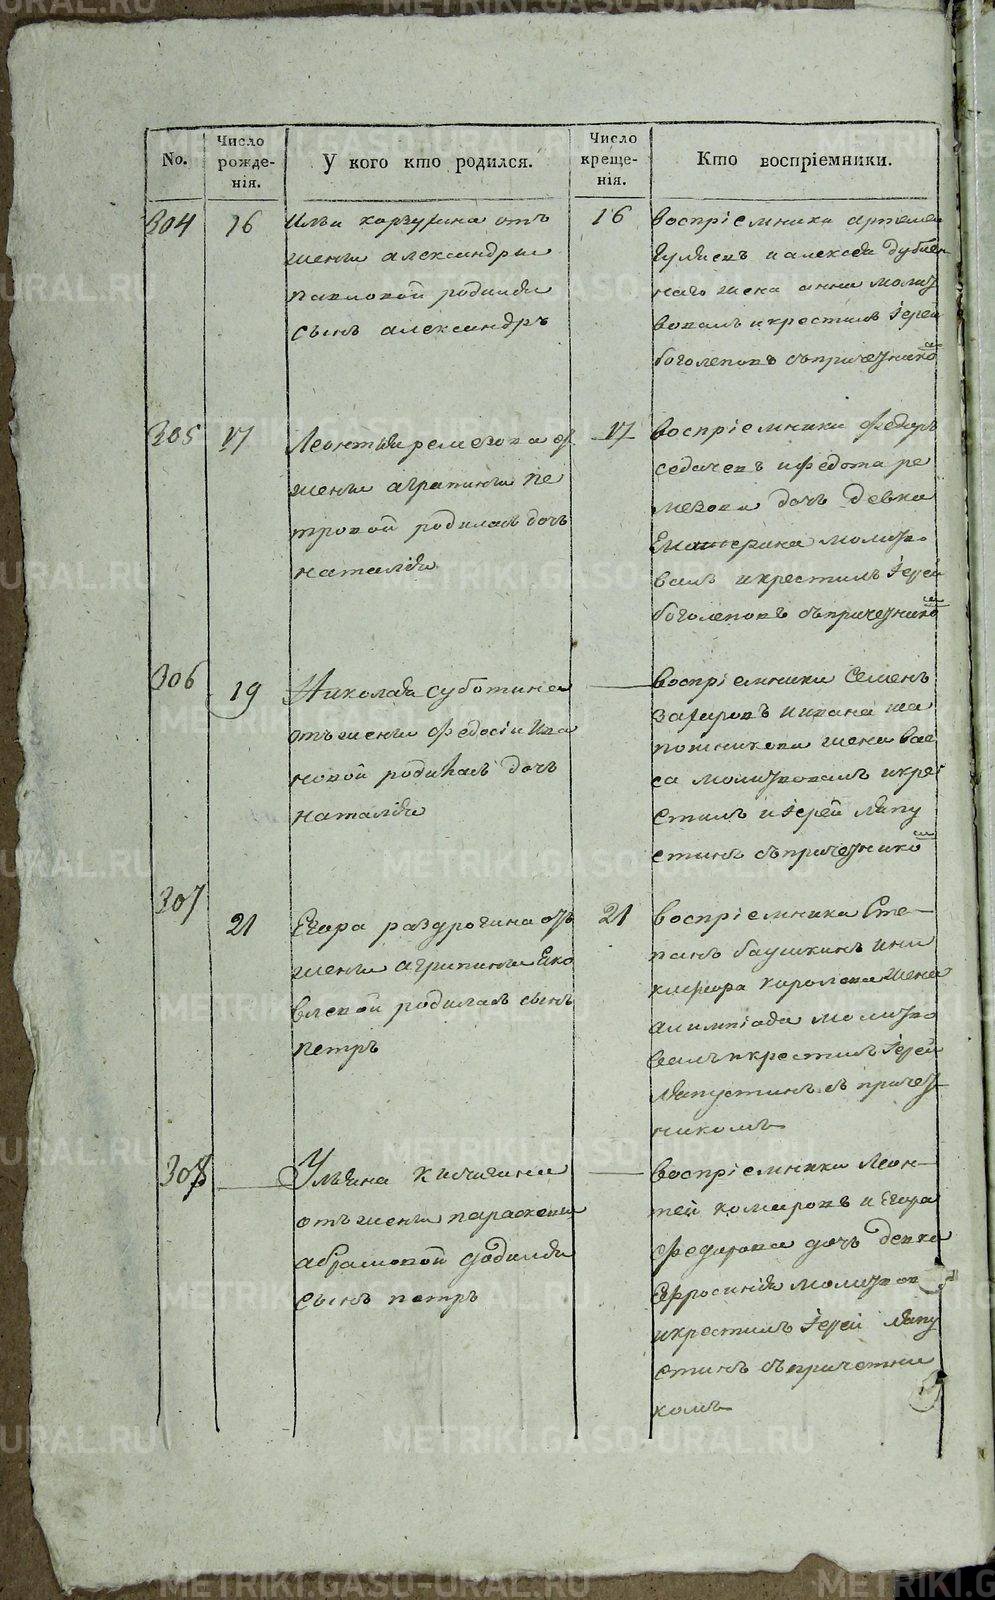 No.
Число рожде-нія.
У кого кто родился.
Число креще-нія.
Кто воспріемники.
304
16
Ильи корзухина отъ
жены александры
павловой родился
сынъ александръ
16
воспріемники артемей
и алексея
наго жена анна молит
вовалъ и крестилъ іерей
боголеповъ съ причетнико
305
17
Леонтия ремезова от
жены агрипины пе
тровой родилась дочь
наталия
17
воспріемники Федоръ
седачевъ и федота ре
мезова дочь девка
Екатерина молитво
валъ и крестилъ іерей
боголеповъ съ причетнико
306
19
Николая суботина
отъ жены Федосіи ива
новой родилась дочь
наталия
воспріемники Семенъ
захаровъ и ивана ша
пошникова жена васи
са молитвовалъ и кре
стилъ и іерей ляпу
стинъ съ причетнико
307
21
Егора раздрогина отъ
жены агрипины Еко
влевой родился сынъ
петръ
21
воспріемники Сте-
панъ баушкинъ и ни
кифора королева жена
алимпіада молитво
валъ и крестилъ іерей
ляпустинъ съ причет
никомъ
308
Ульяна кичигина
отъ жены парасковии
абрамовой родился
сынъ петръ
воспріемники Леон-
тей комаровъ и Егора
федорова дочь девка
Ефросиния молитвов
и крестилъ іерей ляпу
стинъ съ причетни
комъ
METRIKI.GASO-URAL.RU